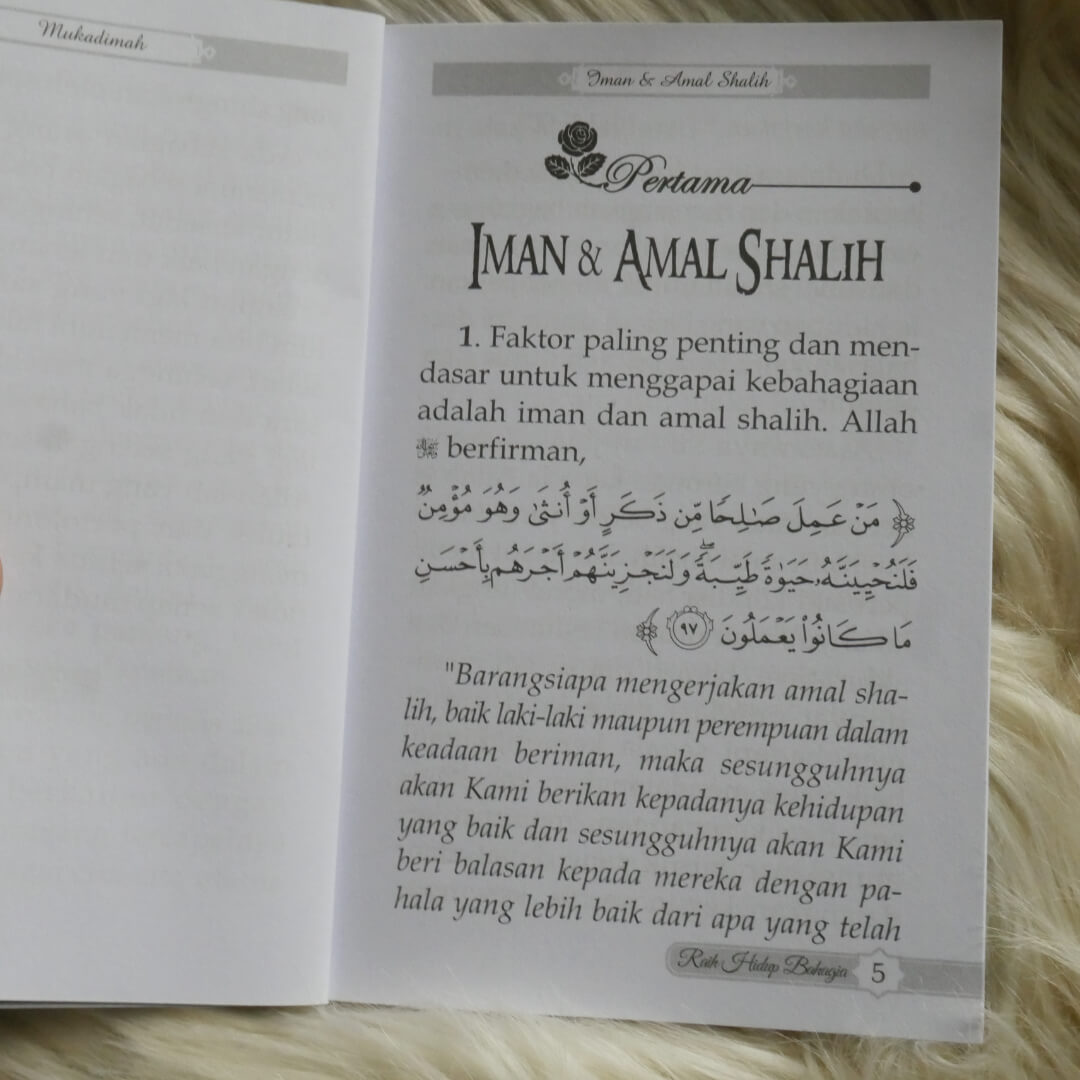 Mukadimah
Iman & Amal Shalih
Pertama
IMAN & AMAL SHALIH
1. Faktor paling penting dan men-
dasar untuk menggapai kebahagiaan
adalah iman dan amal shalih. Allah
ﷻ berfirman,
﴿ مَنْ عَمِلَ صَـٰلِحًا مِّن ذَكَرٍ أَوْ أُنثَىٰ وَهُوَ مُؤْمِنٌ
فَلَنُحْيِيَنَّهُۥ حَيَوٰةً طَيِّبَةً ۖ وَلَنَجْزِيَنَّهُمْ أَجْرَهُم بِأَحْسَنِ
مَا كَانُوا۟ يَعْمَلُونَ ٩٧ ﴾
"Barangsiapa mengerjakan amal sha-
lih, baik laki-laki maupun perempuan dalam
keadaan beriman, maka sesungguhnya
akan Kami berikan kepadanya kehidupan
yang baik dan sesungguhnya akan Kami
beri balasan kepada mereka dengan pa-
hala yang lebih baik dari apa yang telah
Raih Hidup Bahagia 5